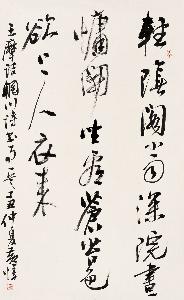 輕陰閣小雨深院晝
慵開坐看蒼苔色
欲上人衣来
王摩詰輞川詩 丑仲夏